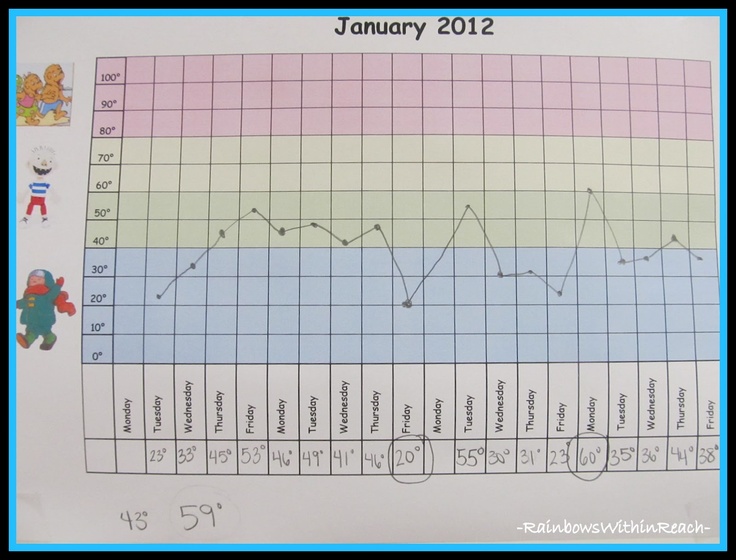 January 2012
100°
90°
80°
70°
60°
50°
40°
30°
20°
10°
0°
Monday Tuesday Wednesday Thursday Friday Monday Tuesday Wednesday Thursday Friday Monday Tuesday Wednesday Thursday Friday Monday Tuesday Wednesday Thursday Friday
23° 33° 45° 53° 46° 49° 41° 46° 20° 55° 30° 31° 23 60° 35° 36° 44° 38°
43° 59°
-RainbowsWithinReach-